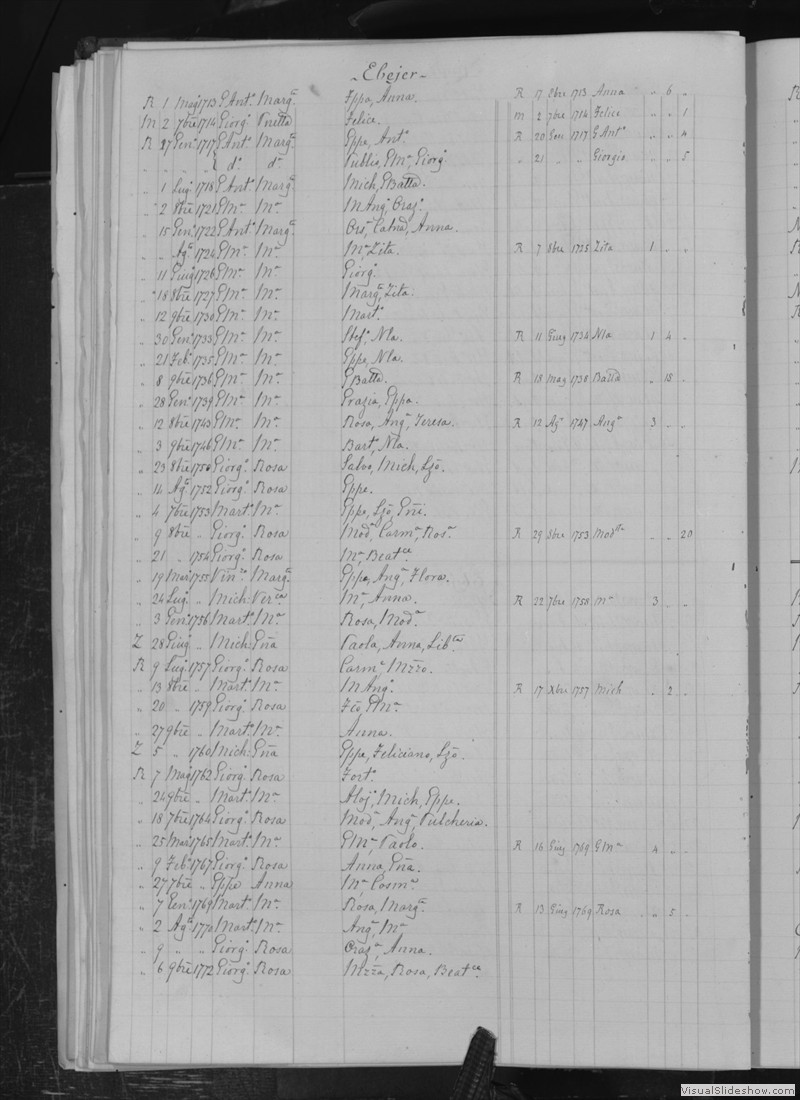 Ebejer
R 1 Mag 1713 G Ant.º Marg.ª Gppa, Anna. R 17 8bre 1713 Anna " 6 "
M 2 7bre 1714 Giorg.º Vnetta Felice. M 2 7bre 1714 Felice " " 1
R 27 Gen.º 1717 G Ant.º Marg.ª Gppe, Ant.º R 20 Gen 1717 G Ant.º " " 4
" " " " d.º d.ª Publio, GMª, Giorg.º " 21 " " Giorgio " " 5
" 1 Lug. 1718 G Ant.º Marg.ª Mich, GBatta.
" 2 8bre 1721 GMª Mª M Ang.ª, Oraz.º
" 15 Gen.º 1722 G Ant.º Marg.ª Ors.ª, Catnª, Anna.
" " Ag.º 1724 GMª Mª Mª Zita. R 7 8bre 1725 Zita 1 " "
" 11 Giug 1726 GMª Mª Giorg.º
" 18 8bre 1727 GMª Mª Marg.ª, Zita.
" 12 9bre 1730 GMª Mª Mart.º
" 30 Gen.º 1733 GMª Mª Stef.º, Nla. R 11 Giug 1734 Nla 1 4 "
" 21 Feb.º 1735 GMª Mª Gppe, Nla.
" 8 9bre 1736 GMª Mª GBatta. R 18 Mag 1738 Batta " 18 "
" 28 Gen.º 1739 GMª Mª Grazia, Gppa.
" 12 8bre 1743 GMª Mª Rosa, Ang.ª, Teresa. R 12 Ag.º 1747 Ang.ª 3 " "
" 3 9bre 1746 GMª Mª Bart.º, Nla.
" 23 8bre 1750 Giorg.º Rosa Salvo, Mich, Ljo.
" 14 Ag.º 1752 Giorg.º Rosa Gppe.
" 4 7bre 1753 Mart.º Mª Gppe, Ljo, Gni.
" 9 8bre " Giorg.º Rosa Mod.ª, Carm.ª, Ros.ª R 29 8bre 1753 Mod " " 20
" 21 " 1754 Giorg.º Rosa Mª, Beat.ce
" 19 Mar 1755 Vin.zo Marg.ª Gppe, Ang.ª, Flora.
" 24 Lug. " Mich: Ver.ca Mª, Anna. R 22 7bre 1758 Mª 3 " "
" 3 Gen.º 1756 Mart.º Mª Rosa, Mod.ª
Z 28 Giug " Mich: Gna Paola, Anna, Lib.ta
R 9 Lug 1757 Giorg.º Rosa Carm.ª, Mzzo.
" 13 8bre " Mart.º Mª M Ang.º R 17 Xbre 1757 Mich " 2 "
" 20 " 1759 Giorg.º Rosa Fco, GMª
" 27 9bre " Mart.º Mª Anna.
Z 5 " 1760 Mich: Gna Gppe, Feliciano, Ljo.
R 7 Mag 1762 Giorg.º Rosa Fort.º
" 24 9bre " Mart.º Mª Aloj, Mich, Gppe.
" 18 7bre 1764 Giorg.º Rosa Mod.ª, Ang.ª, Pulcheria.
" 25 Mar 1765 Mart.º Mª GMª, Paolo. R 16 Giug 1769 GMª 4 " "
" 9 Feb.º 1767 Giorg.º Rosa Anna, Gna.
" 27 7bre " Gppe Anna Mª, Cosm.ª
" 7 Gen.º 1769 Mart.º Mª Rosa, Marg.ª R 13 Giug 1769 Rosa " 5 "
" 2 Ag.º 1772 Mart.º Mª Ang.ª, Mª
" 9 " " Giorg.º Rosa Oraz.ª, Anna.
" 6 9bre 1772 Giorg.º Rosa Mzza, Rosa, Beat.ce
VisualSlideshow.com